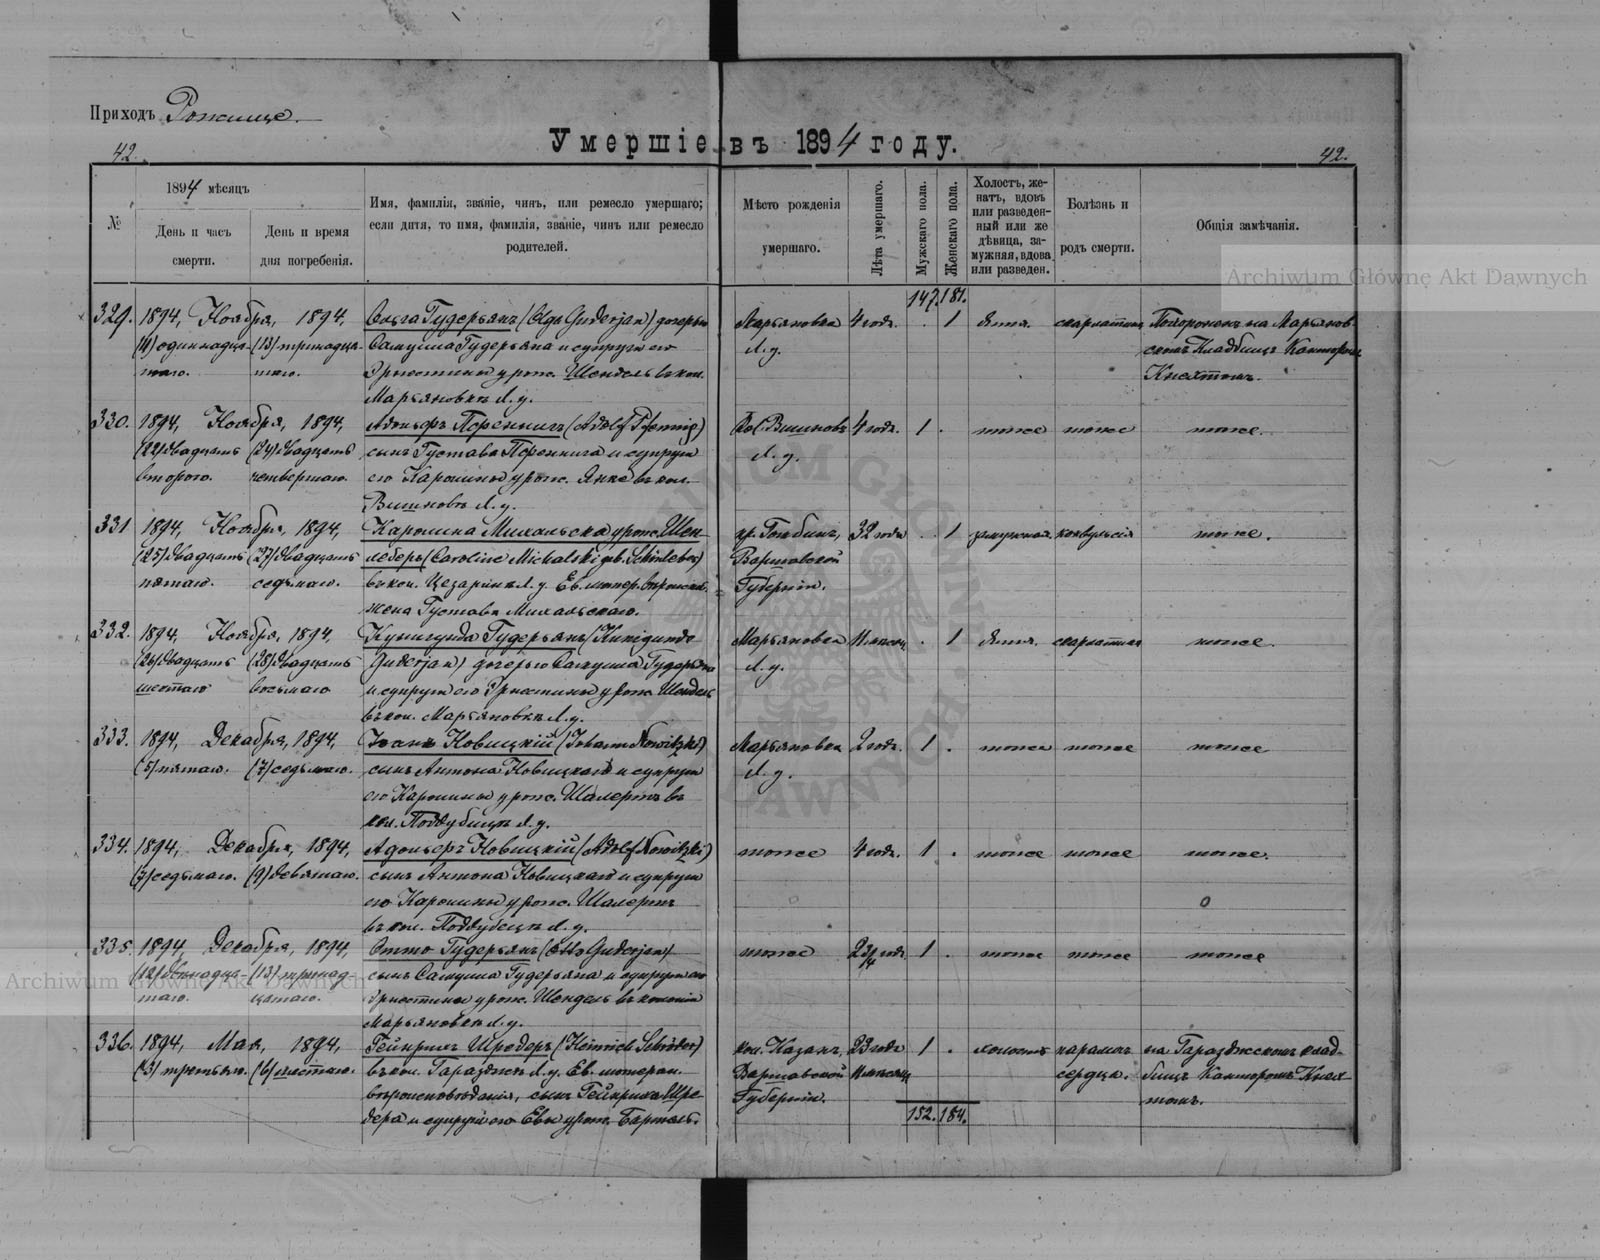 Приходъ Рожище.
Умершіе въ 1894 году.
42.
42.
№
1894 мѣсяцъ
День и часъ
смерти.
День и время
дня погребенія.
Имя, фамилія, званіе, чинъ, или ремесло умершаго;
если дитя, то имя, фамилія, званіе, чинъ или ремесло
родителей.
Мѣсто рожденія
умершаго.
Лѣта умершаго.
Мужскаго пола.
Женскаго пола.
Холостъ, же-
натъ, вдовъ
или разведен-
ный или же
дѣвица, за-
мужняя, вдова
или разведен.
Болѣзнь и
родъ смерти.
Общія замѣчанія.
Archiwum Główne Akt Dawnych
147. 181.
329. 1894, Ноября, 1894, Ольга Гудерьянъ (Olga Guderjan) дочерью Марьяновка 4 года. . 1 дитя. скарлатина Похороненъ на Марьянов-
(11) одиннадца- (13) тринадца- Самуила Гудерьяна и супруги его Л. у. скомъ Кладбищѣ Канторомъ
таго. таго. Эрнестины урож. Шендель въ кол. Кнехтомъ.
Марьяновкѣ Л. у.
330. 1894, Ноября, 1894, Адольфъ Пфеннигъ (Adolf Pfennig) Кол. Вишневъ 4 года. 1 . тоже тоже тоже.
(22) двадцать (24) двадцать сынъ Густава Пфеннига и супруги Л. у.
второго. четвертаго. его Каролины урож. Янке въ кол.
Вишневъ Л. у.
331 1894, Ноября, 1894, Каролина Михальска урож. Шен- гр. Гомбинъ, 32 года . 1 замужная. конвульсія тоже.
(25) двадцать (27) двадцать леберъ (Caroline Michalski geb. Schönleber) Варшавской
пятаго. седьмаго. въ кол. Цезаринъ Л. у. Ев. лютер. вѣроисп. Губерніи.
жена Густава Михальскаго.
332. 1894, Ноября, 1894, Кунигунда Гудерьянъ (Kunigunde Марьяновка 11 мѣсяц. . 1 дитя. скарлатина тоже.
(26) двадцать (28) двадцать Guderjan) дочерью Самуила Гудерьяна Л. у.
шестаго восьмаго и супруги его Эрнестины урож. Шендель
въ кол. Марьяновкѣ Л. у.
333. 1894, Декабря, 1894, Іоанъ Новицкій (Johann Nowitzki) Марьяновка 2 года. 1 . тоже тоже тоже
(5) пятаго. (7) седьмаго. сынъ Антона Новицкаго и супруги Л. у.
его Каролины урож. Шалертъ въ
кол. Поддубицъ Л. у.
334. 1894, Декабря, 1894, Адольфъ Новицкій (Adolf Nowitzki) тоже 4 года. 1 . тоже тоже тоже.
(7) седьмаго. (9) девятаго. сынъ Антона Новицкаго и супруги
его Каролины урож. Шалертъ
въ кол. Поддубецъ Л. у.
335. 1894, Декабря, 1894, Отто Гудерьянъ (Otto Guderjan) тоже 1 . тоже тоже тоже
(12) двѣнадца- (13) тринад- сынъ Самуила Гудерьяна и супруги его
таго. цатаго. Эрнестины урож. Шендель въ колоніи
Марьяновкѣ Л. у.
Archiwum Główne Akt Dawnych
336. 1894, Мая, 1894, Гейнрихъ Шредеръ (Heinrich Schröder) кол. Казанъ, 23 года 1 . холостъ параличъ на Гаразджскомъ клад-
(3) третьяго. (6) шестаго. въ кол. Гаразджѣ Л. у. Ев. лютеран. Варшавской 11 мѣсяц. сердца. бищѣ Канторомъ Кнех-
вѣроисповѣданія, сынъ Гейнриха Шре- Губерніи. томъ.
дера и супруги его Евы урож. Бартель.
152. 184.